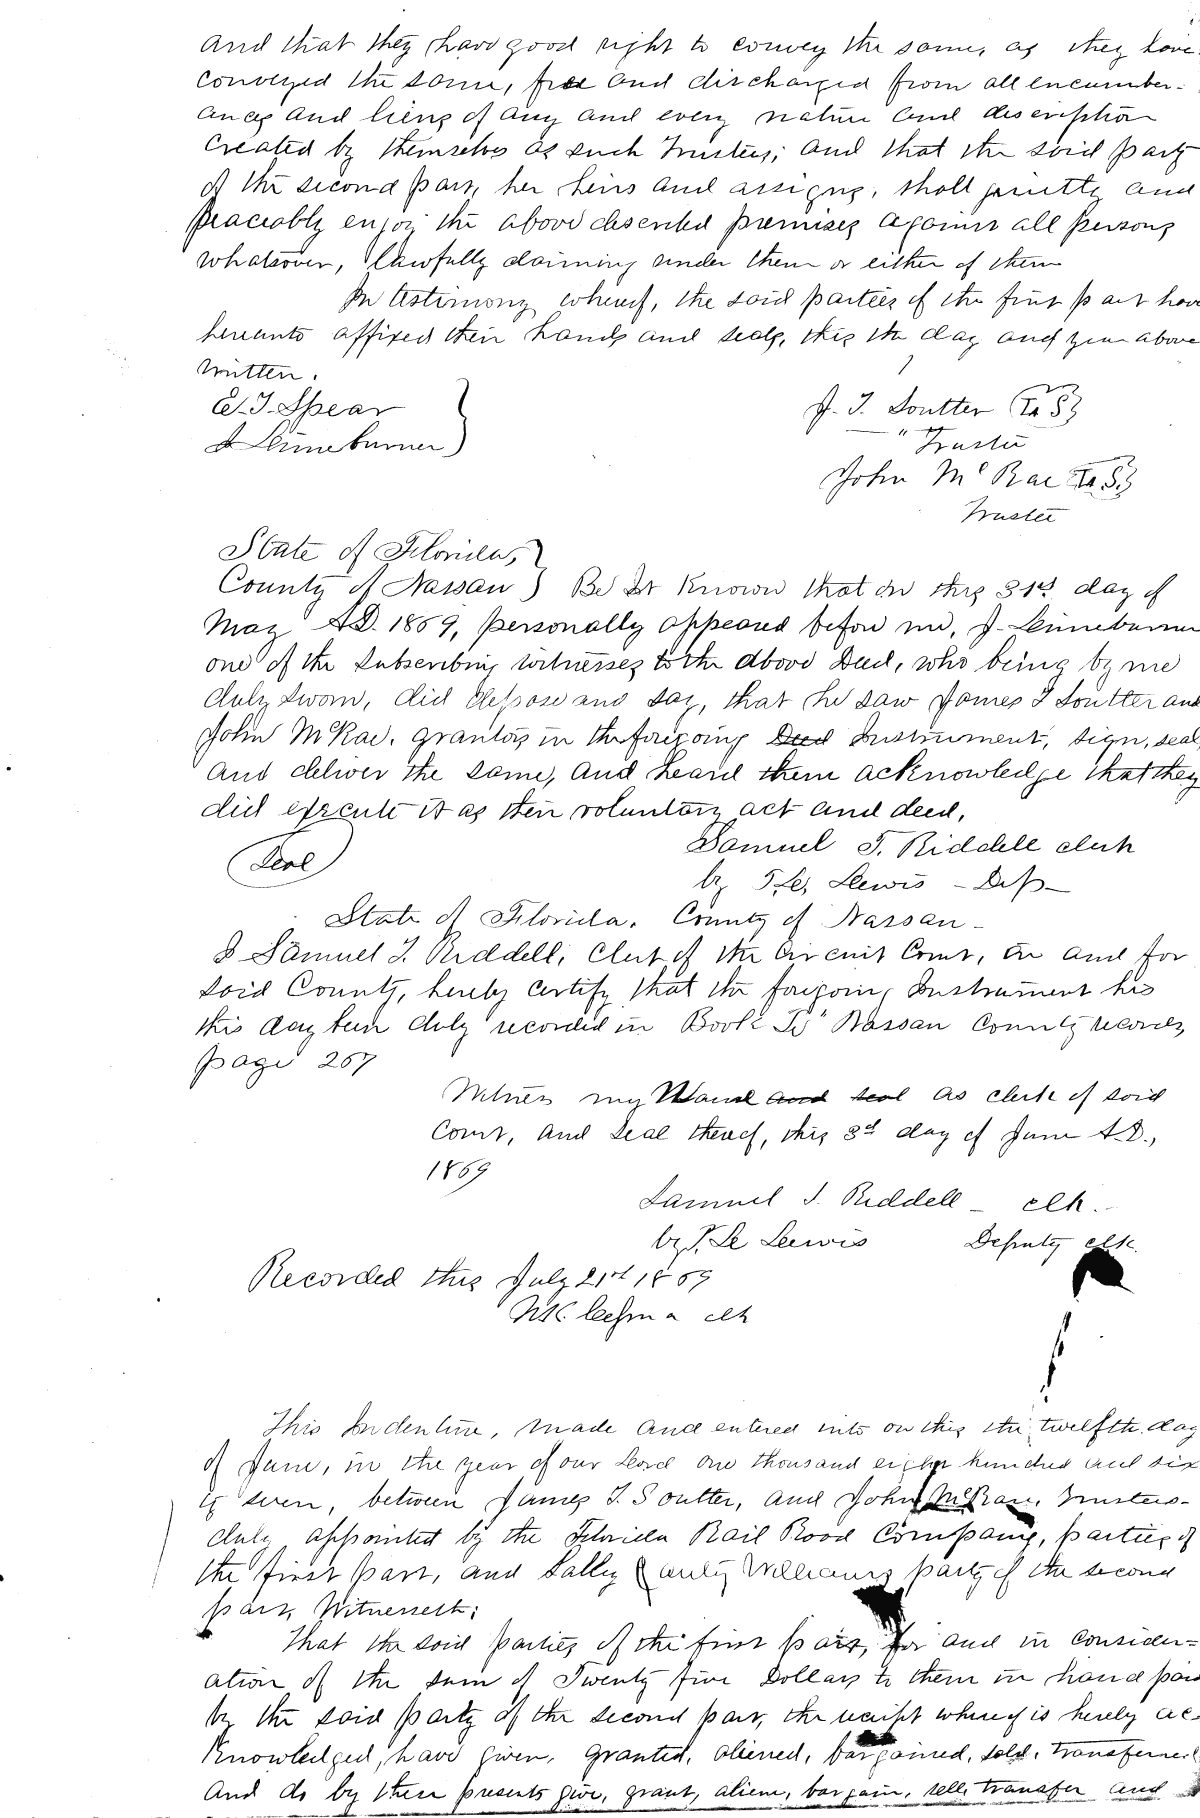 and that they have good right to convey the same, as they have
conveyed the same, free and discharged from all encumber-
ances and liens of any and every nature and description
created by themselves as such Trustees; and that the said party
of the second part, her heirs and assigns, shall quietly and
peaceably enjoy the above described premises against all persons
whatsoever, lawfully claiming under them or either of them
In testimony whereof, the said parties of the first part have
hereunto affixed their hands and seals, this the day and year above
written.
E. T. Spear
J. T. Soutter
Trustee
John McRae
Trustee
State of Florida,
County of Nassau } Be It Known that on this 31st day of
May AD. 1869, personally appeared before me, J. Linneburner
one of the Subscribing witnesses to the above Deed, who being by me
duly sworn, did depose and say, that he saw James T Soutter and
John McRae, grantors in the foregoing Deed Instrument, sign, seal,
and deliver the same, and heard them acknowledge that they
did execute it as their voluntary act and deed.
Seal
Samuel T. Riddell clerk
by Lewis - Dep -
State of Florida. County of Nassau -
I Samuel T. Riddell, Clerk of the Circuit Court, in and for
said County, hereby certify that the foregoing Instrument has
this day been duly recorded in Book Nassau County records,
page 267
Witness my Hand and seal as clerk of said
Court, and seal thereof, this 3rd day of June A.D.,
1869
Samuel T. Riddell - clk.
by Lewis Deputy clk.
Recorded this July 21st 1869
clk
This Indenture, made and entered into on this the twelfth day
of June, in the year of our Lord one thousand eight hundred and six
ty seven, between James T. Soutter, and John McRae, Trustees
duly appointed by the Florida Rail Road Company, parties of
the first part, and Sally Williams party of the second
part, Witnesseth;
That the said parties of the first part, for and in consider=
ation of the sum of Twenty five Dollars to them in hand paid
by the said party of the second part, the receipt whereof is hereby ac-
knowledged, have given, granted, aliened, bargained, sold, transferred
and do by these presents give, grant, alien, bargain, sell, transfer and